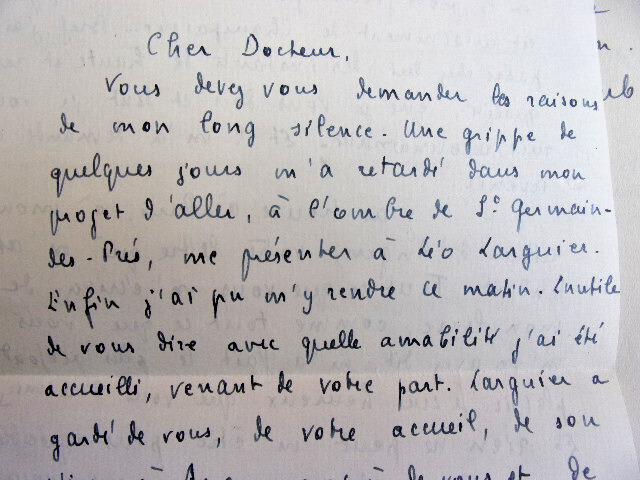 Cher Docteur,
Vous devez vous demander les raisons
de mon long silence. Une grippe de
quelques jours m'a retardé dans mon
projet d'aller, à l'ombre de St Germain-
des-Prés, me présenter à Léo Larguier.
Enfin j'ai pu m'y rendre ce matin. Inutile
de vous dire avec quelle amabilité j'ai été
accueilli, venant de votre part. Larguier a
gardé de vous, de votre accueil, de son
de vous et de